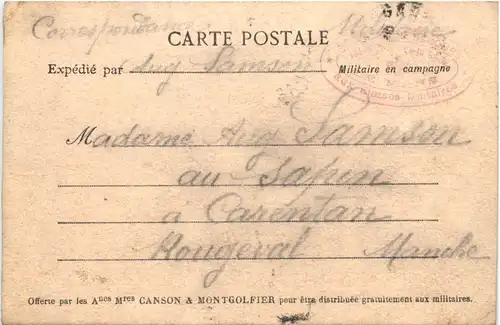 Correspondance Militaire
CARTE POSTALE
Expédié par Aug Samson Militaire en campagne
Madame Aug Samson
au Sapin
à Carentan
Rougeval Manche
Offerte par les Anes Mres CANSON & MONTGOLFIER pour être distribuée gratuitement aux militaires.